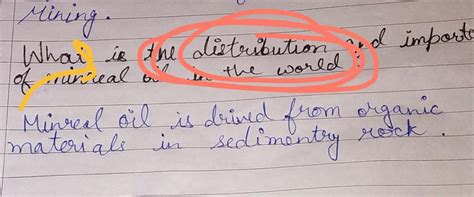 Mining.
What is the distribution and importe
of minreal oil in the world
Minreal oil is drived from organic
materials in sedimentry rock.